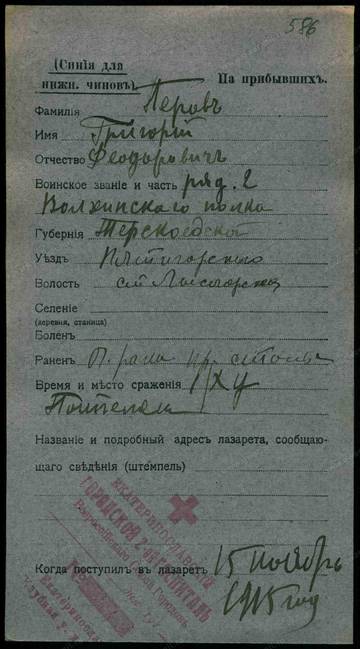 586
(Синія для
нижн. чиновъ).
На прибывшихъ.
Фамилія Перовъ
Имя Григорій
Отчество Феодоровичъ
Воинское званіе и часть ряд. 2
Волхинскаго полка
Губернія Терской
Уѣздъ Пятигорскаго
Волость ст. Лысогорск
Селеніе
(деревня, станица)
Боленъ
Раненъ п. рана пр. стопы
Время и мѣсто сраженія 1/XV
Названіе и подробный адресъ лазарета, сообщаю-
щаго свѣдѣнія (штемпель)
ЕКАТЕРИНОСЛАВСКІЙ
ГОРОДСКОЙ 2 ГОСПИТАЛЬ
Всероссійскаго Городовъ
Екатеринослав
Когда поступилъ въ лазаретъ 15 ноябрь
1915 год